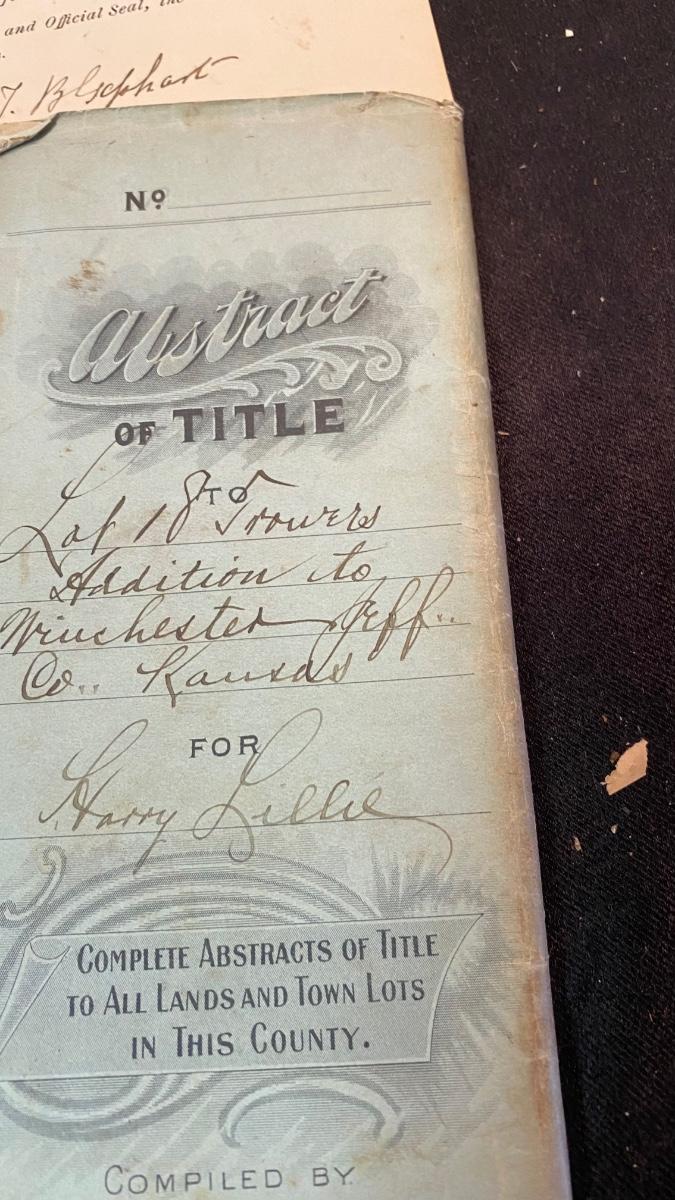 and Official Seal, the
No
Abstract
OF TITLE
TO
Lot 18 Trowers
Addition to
Winchester Jeff..
Co.. Kansas
FOR
Harry Lillie
COMPLETE ABSTRACTS OF TITLE
TO ALL LANDS AND TOWN LOTS
IN THIS COUNTY.
COMPILED BY